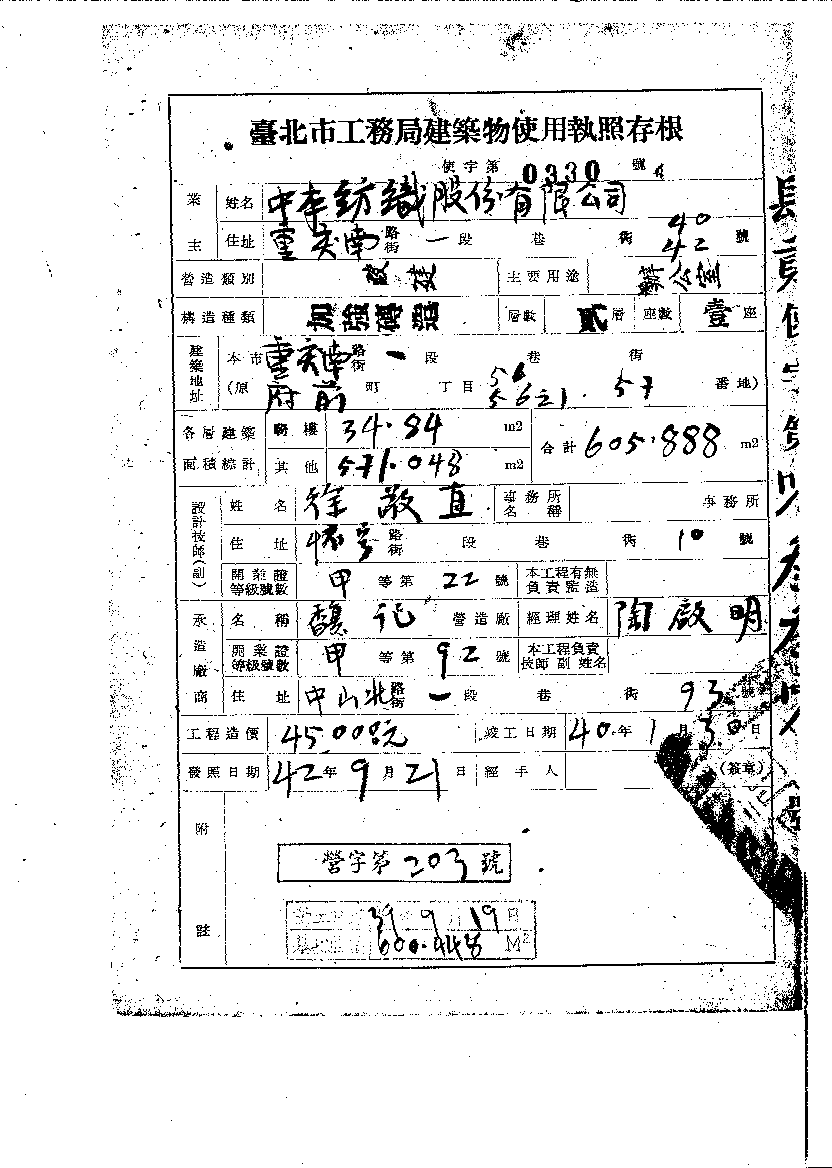 臺北市工務局建築物使用執照存根
使字第 0330 號
業主 姓名 中本紡織股份有限公司
住址 重慶南 路街 一 段 巷 街 40 42 號
營造類別 改建 主要用途 辦公室
構造種類 加強磚造 層數 貳 層 座數 壹 座
建築地址 本市 重慶南 路街 一 段 巷 街
(原 府前 町 丁目 56 56之1 . 57 番地)
各層建築面積綜計 騎樓 34.84 m2 合計 605.888 m2
其他 571.048 m2
設計技師(副) 姓名 徐敬直 事務所名稱 事務所
住址 懷寧 路街 段 巷 街 10 號
開業證等級號數 甲 等第 22 號 本工程有無負責監造
承造廠商 名稱 馥記 營造廠 經理姓名 陶啟明
開業證等級號數 甲 等第 92 號 本工程負責技師副姓名
住址 中山北 路街 一 段 巷 街 93 號
工程造價 45,000元 竣工日期 40 年 1 月 30 日
發照日期 42 年 9 月 21 日 經手人 (簽章)
附註
營字第 203 號
39 9 月 19 日
600.448 M2